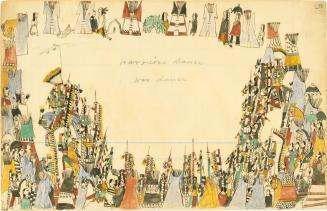 warriors dance
war dance